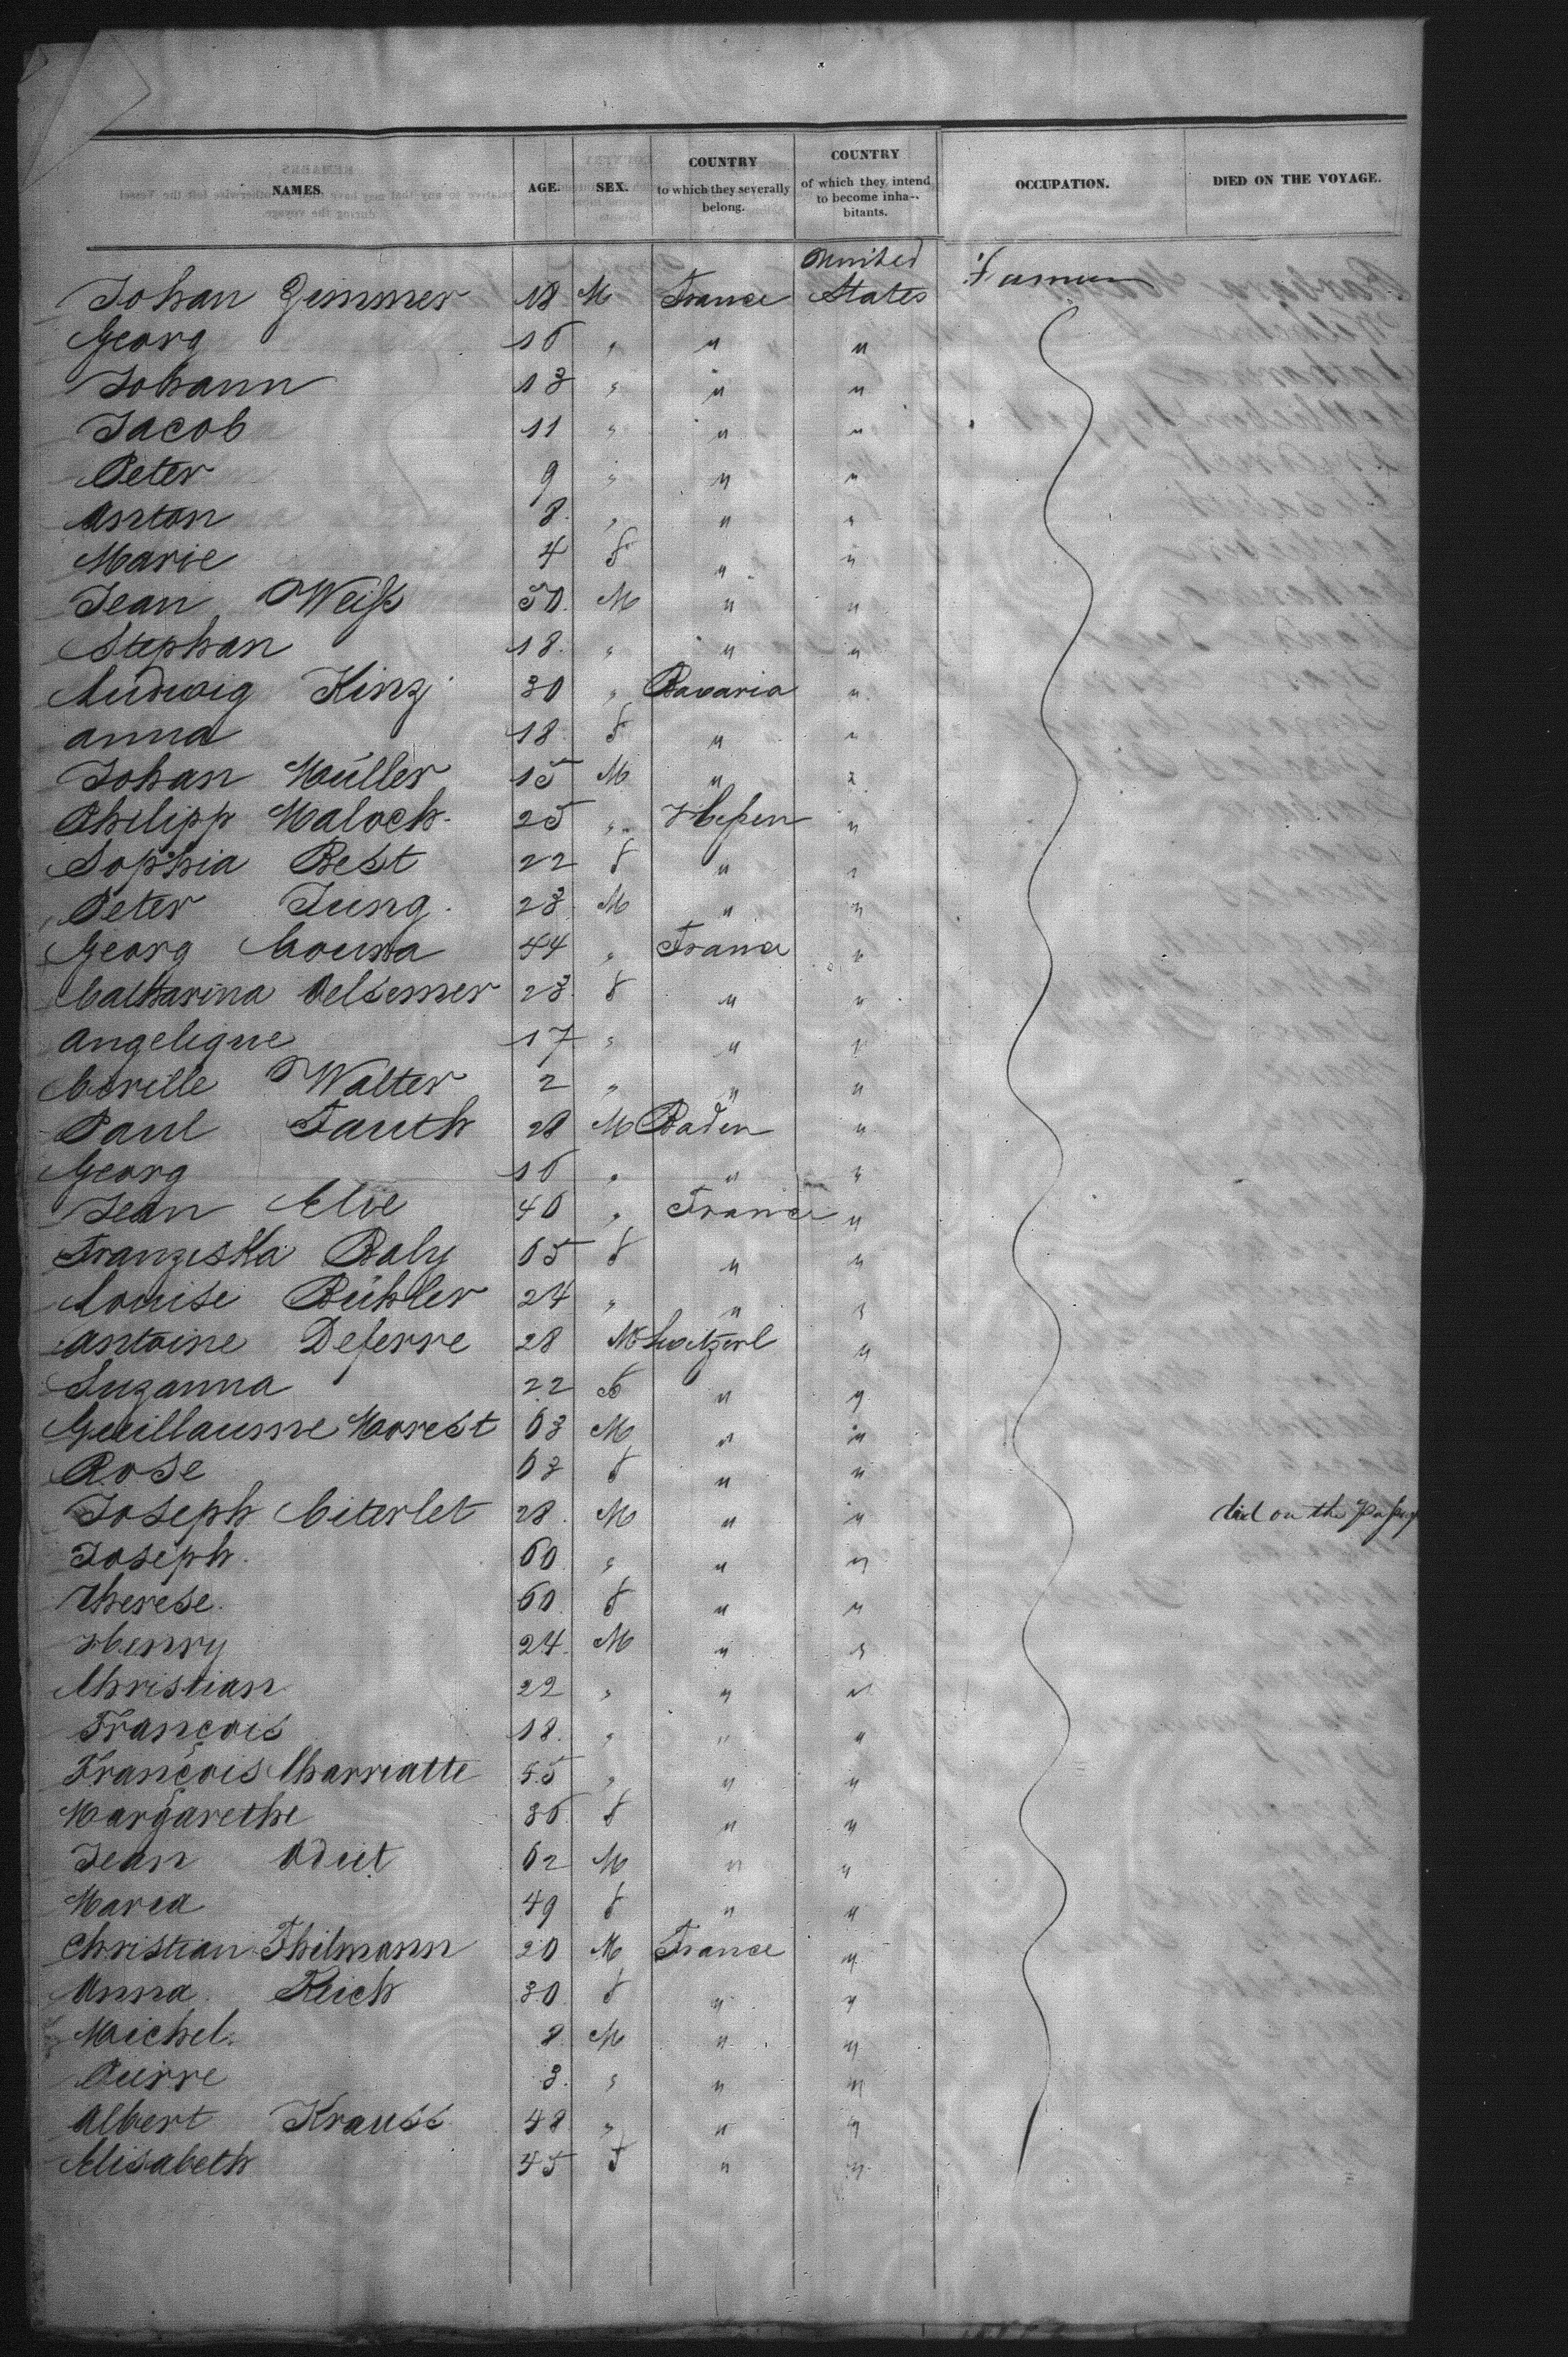 NAMES. AGE. SEX. COUNTRY to which they severally belong. COUNTRY of which they intend to become inha-bitants. OCCUPATION. DIED ON THE VOYAGE.
Johan Zimmer 18 M France United States Farmer
Georg 16 " " "
Johann 13 " " "
Jacob 11 " " "
Peter 9 " " "
Anton 8 " " "
Marie 4 f " "
Jean Weiß 50 M " "
Stephan 18 " " "
Ludwig Kinz 30 " Bavaria "
Anna 18 f " "
Johan Müller 15 M " "
Philipp Maloch 25 " Heßen "
Sophia Best 22 f " "
Peter Jung 23 M " "
Georg 44 " France "
Catharina Oelsemer 23 f " "
Angelique 17 " " "
Walter 2 " " "
Paul Fauth 28 M Baden "
Georg 16 " " "
Jean Elie 40 " France "
Franziska Baly 65 f " "
Louise Bühler 24 " " "
Antoine Deferre 28 M Switzerl "
Suzanna 22 f " "
Guillaume Morest 63 M " "
Rose 63 f " "
Joseph Citerlet 28 M " " died on the Paßage
Joseph 60 " " "
Therese 60 f " "
Henry 24 M " "
Christian 22 " " "
François 18 " " "
François Charriatte 55 " " "
Margarethe 36 f " "
Jean Odiet 62 M " "
Maria 49 f " "
Christian Thilmann 20 M France "
Anna Reich 30 f " "
Michel 8 M " "
Pierre 3 " " "
Albert Krauss 48 " " "
Elisabeth 45 F " "